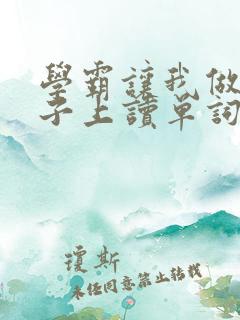 學霸讓我做
子上讀單詞
瓊斯
未任同意禁止转载